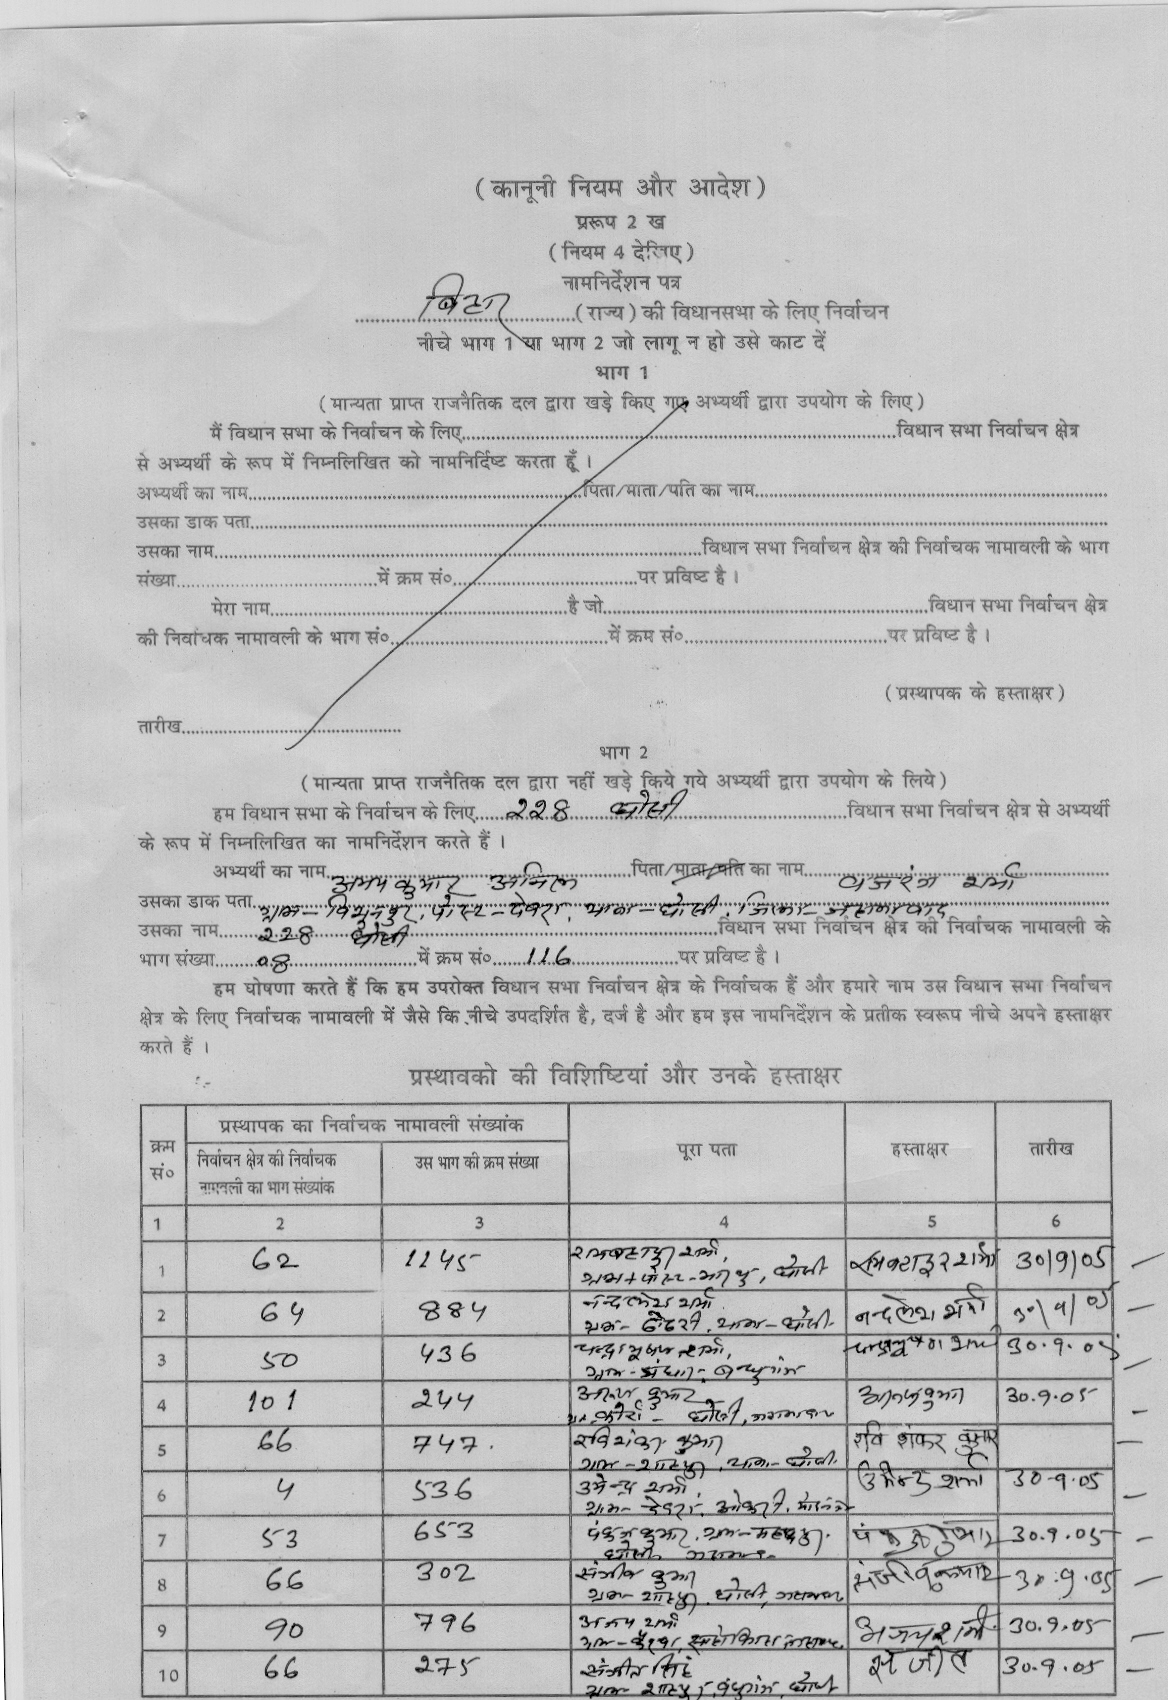 ( कानूनी नियम और आदेश )
प्ररूप 2 ख
( नियम 4 देखिए )
नामनिर्देशन पत्र
बिहार (राज्य) की विधानसभा के लिए निर्वाचन
नीचे भाग 1 या भाग 2 जो लागू न हो उसे काट दें
भाग 1
( मान्यता प्राप्त राजनैतिक दल द्वारा खड़े किए गए अभ्यर्थी द्वारा उपयोग के लिए )
मैं विधान सभा के निर्वाचन के लिए विधान सभा निर्वाचन क्षेत्र
से अभ्यर्थी के रूप में निम्नलिखित को नामनिर्दिष्ट करता हूँ ।
अभ्यर्थी का नाम पिता/माता/पति का नाम
उसका डाक पता
उसका नाम विधान सभा निर्वाचन क्षेत्र की निर्वाचक नामावली के भाग
संख्या में क्रम सं० पर प्रविष्ट है ।
मेरा नाम है जो विधान सभा निर्वाचन क्षेत्र
की निर्वाचक नामावली के भाग सं० में क्रम सं० पर प्रविष्ट है ।
( प्रस्थापक के हस्ताक्षर )
तारीख
भाग 2
( मान्यता प्राप्त राजनैतिक दल द्वारा नहीं खड़े किये गये अभ्यर्थी द्वारा उपयोग के लिये )
हम विधान सभा के निर्वाचन के लिए 228 घोसी विधान सभा निर्वाचन क्षेत्र से अभ्यर्थी
के रूप में निम्नलिखित का नामनिर्देशन करते हैं ।
अभ्यर्थी का नाम अभय कुमार अनिल पिता/माता/पति का नाम बजरंग शर्मा
उसका डाक पता ग्राम- पोस्ट- देवरा, थाना- घोसी, जिला- जहानाबाद
उसका नाम 228 घोसी विधान सभा निर्वाचन क्षेत्र की निर्वाचक नामावली के
भाग संख्या 08 में क्रम सं० 116 पर प्रविष्ट है ।
हम घोषणा करते हैं कि हम उपरोक्त विधान सभा निर्वाचन क्षेत्र के निर्वाचक हैं और हमारे नाम उस विधान सभा निर्वाचन
क्षेत्र के लिए निर्वाचक नामावली में जैसे कि नीचे उपदर्शित है, दर्ज है और हम इस नामनिर्देशन के प्रतीक स्वरूप नीचे अपने हस्ताक्षर
करते हैं ।
प्रस्थावको की विशिष्टियां और उनके हस्ताक्षर
क्रम सं० प्रस्थापक का निर्वाचक नामावली संख्यांक पूरा पता हस्ताक्षर तारीख
निर्वाचन क्षेत्र की निर्वाचक उस भाग की क्रम संख्या
नामवली का भाग संख्यांक
1 2 3 4 5 6
1 62 1145 शर्मा, घोसी 30/9/05
2 64 884 नन्दलेश शर्मा थाना- घोसी. नन्दलेश शर्मा
3 50 436 30.9.05
4 101 244 कुमार घोसी, 30.9.05
5 66 747. रविशंकर कुमार थाना- घोसी. रवि शंकर कुमार
6 4 536 शर्मा शर्मा 30-9.05
7 53 653 पंकज कुमार, घोसी पंकज कुमार 30.9.05
8 66 302 संजीव कुमार घोसी, संजीव कुमार 30.9.05
9 90 796 अजय शर्मा अजय शर्मा 30.9.05
10 66 275 घोसी 30.9.05